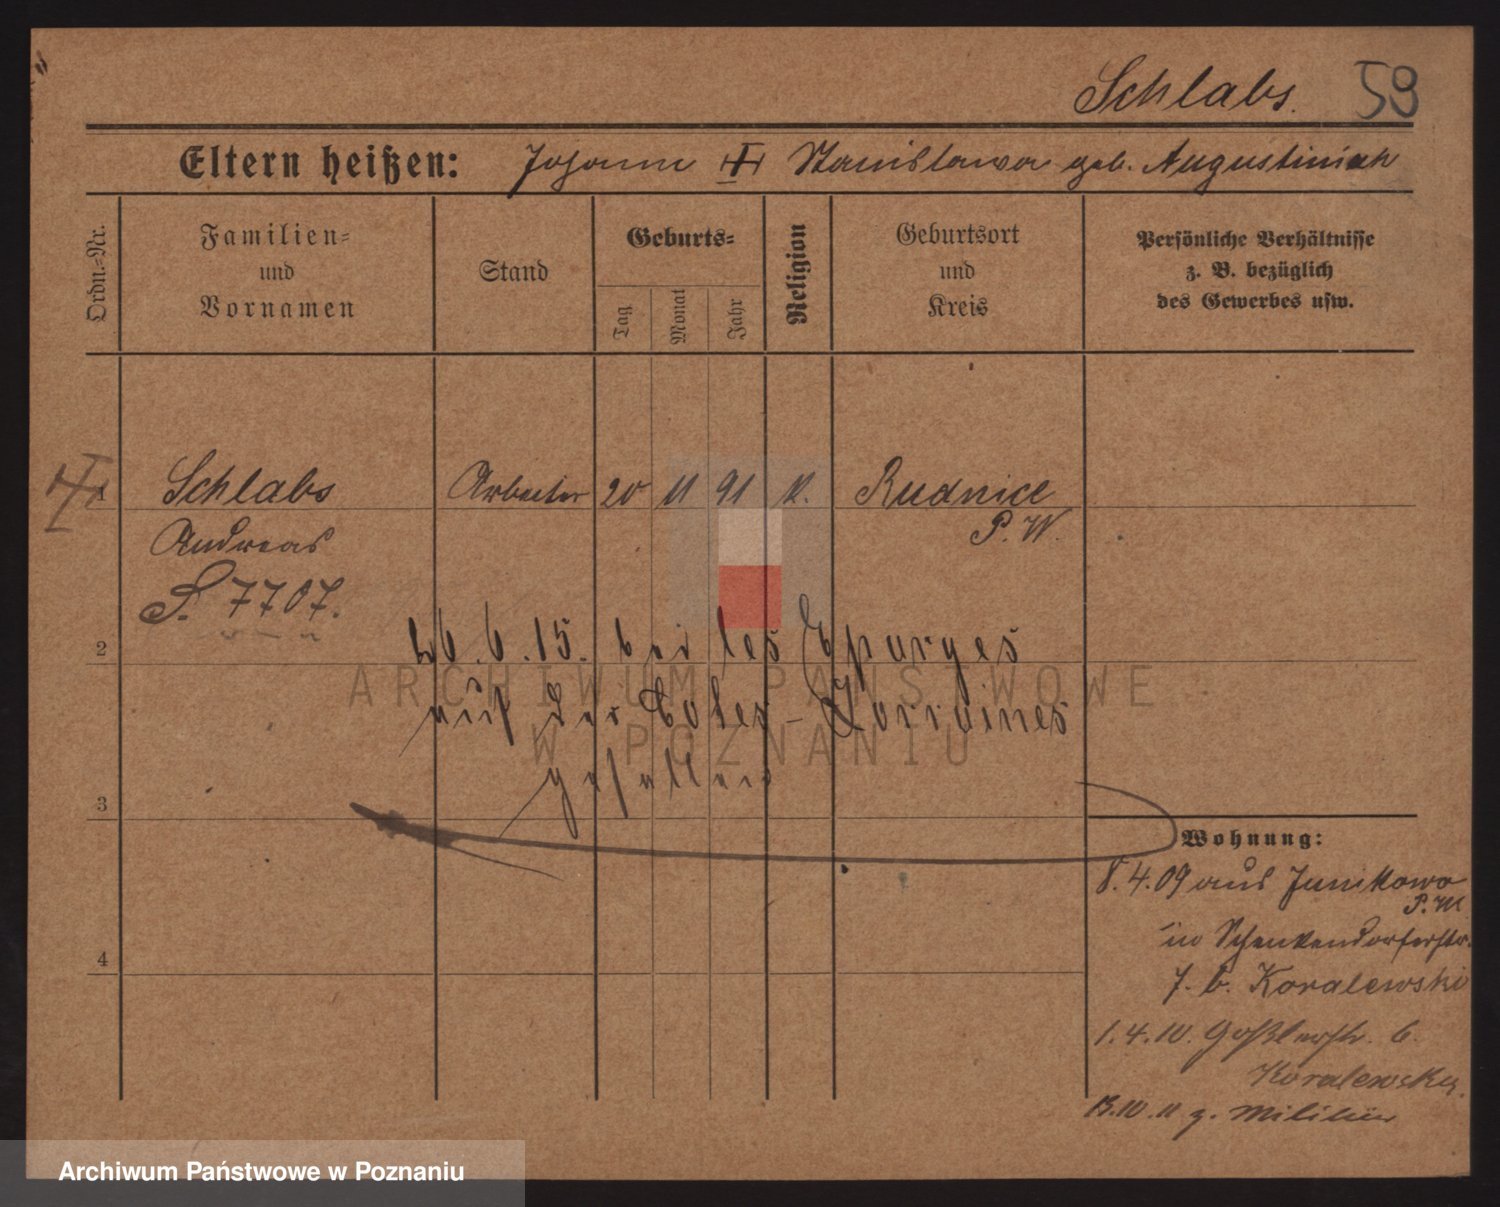 Schlabs. 59
Eltern heißen: Johann Stanislawa geb. Augustiniak
Ordn.-Nr.
Familien-
und
Vornamen
Stand
Geburts-
Tag
Monat
Jahr
Religion
Geburtsort
und
Kreis
Persönliche Verhältnisse
z. B. bezüglich
des Gewerbes usw.
1 Schlabs Arbeiter 20 11 91 k. Rudnice
Andreas P. W.
S. 7707.
6.6.15. bei les Eparges
2
auf der Cotes-Lorraines
gefallen
3
4
Wohnung:
8.4.09 aus Junikowo
P.W
in Schenkendorferstr.
7. b. Koralewski
1.4.10. Goßlerstr. 6.
Koralewsky.
13.10.11 z. Militär
ARCHIWUM PAŃSTWOWE
W POZNANIU
Archiwum Państwowe w Poznaniu